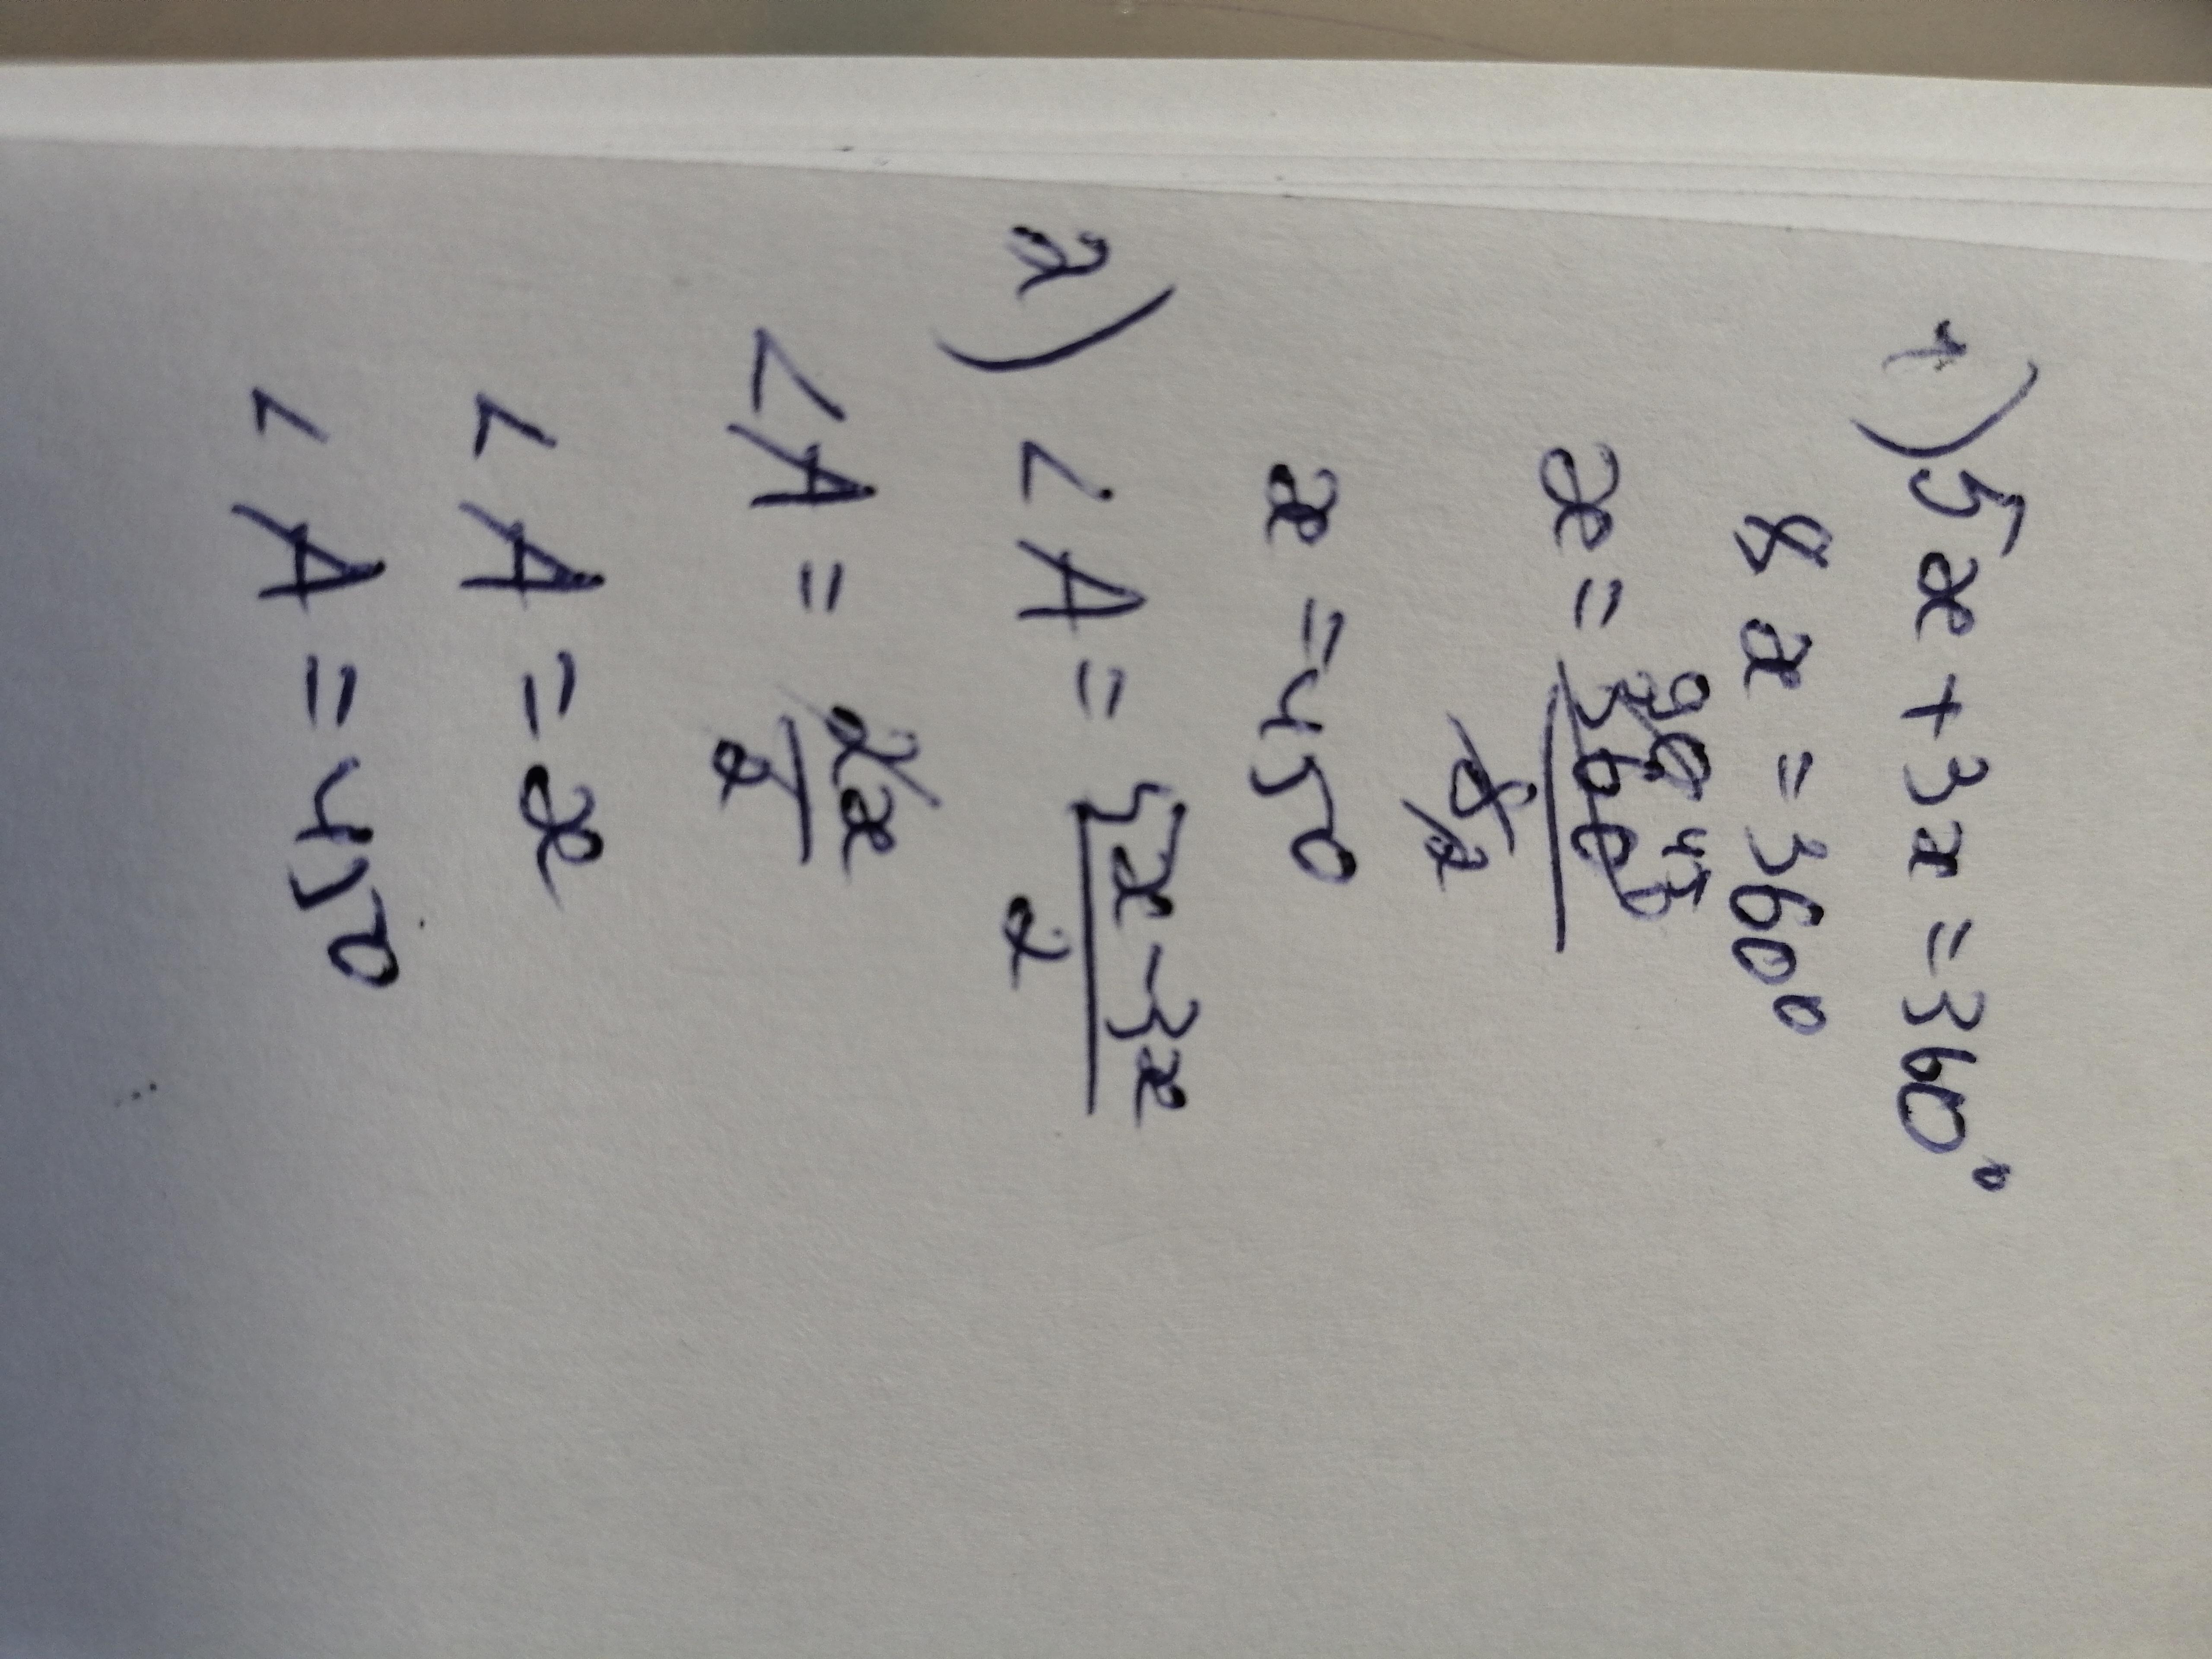 1) 5x + 3x = 360°
8x = 360°
x = 360 / 8
90 45
2
x = 45°
2) ∠A = 5x - 3x / 2
∠A = 2x / 2
∠A = x
∠A = 45°